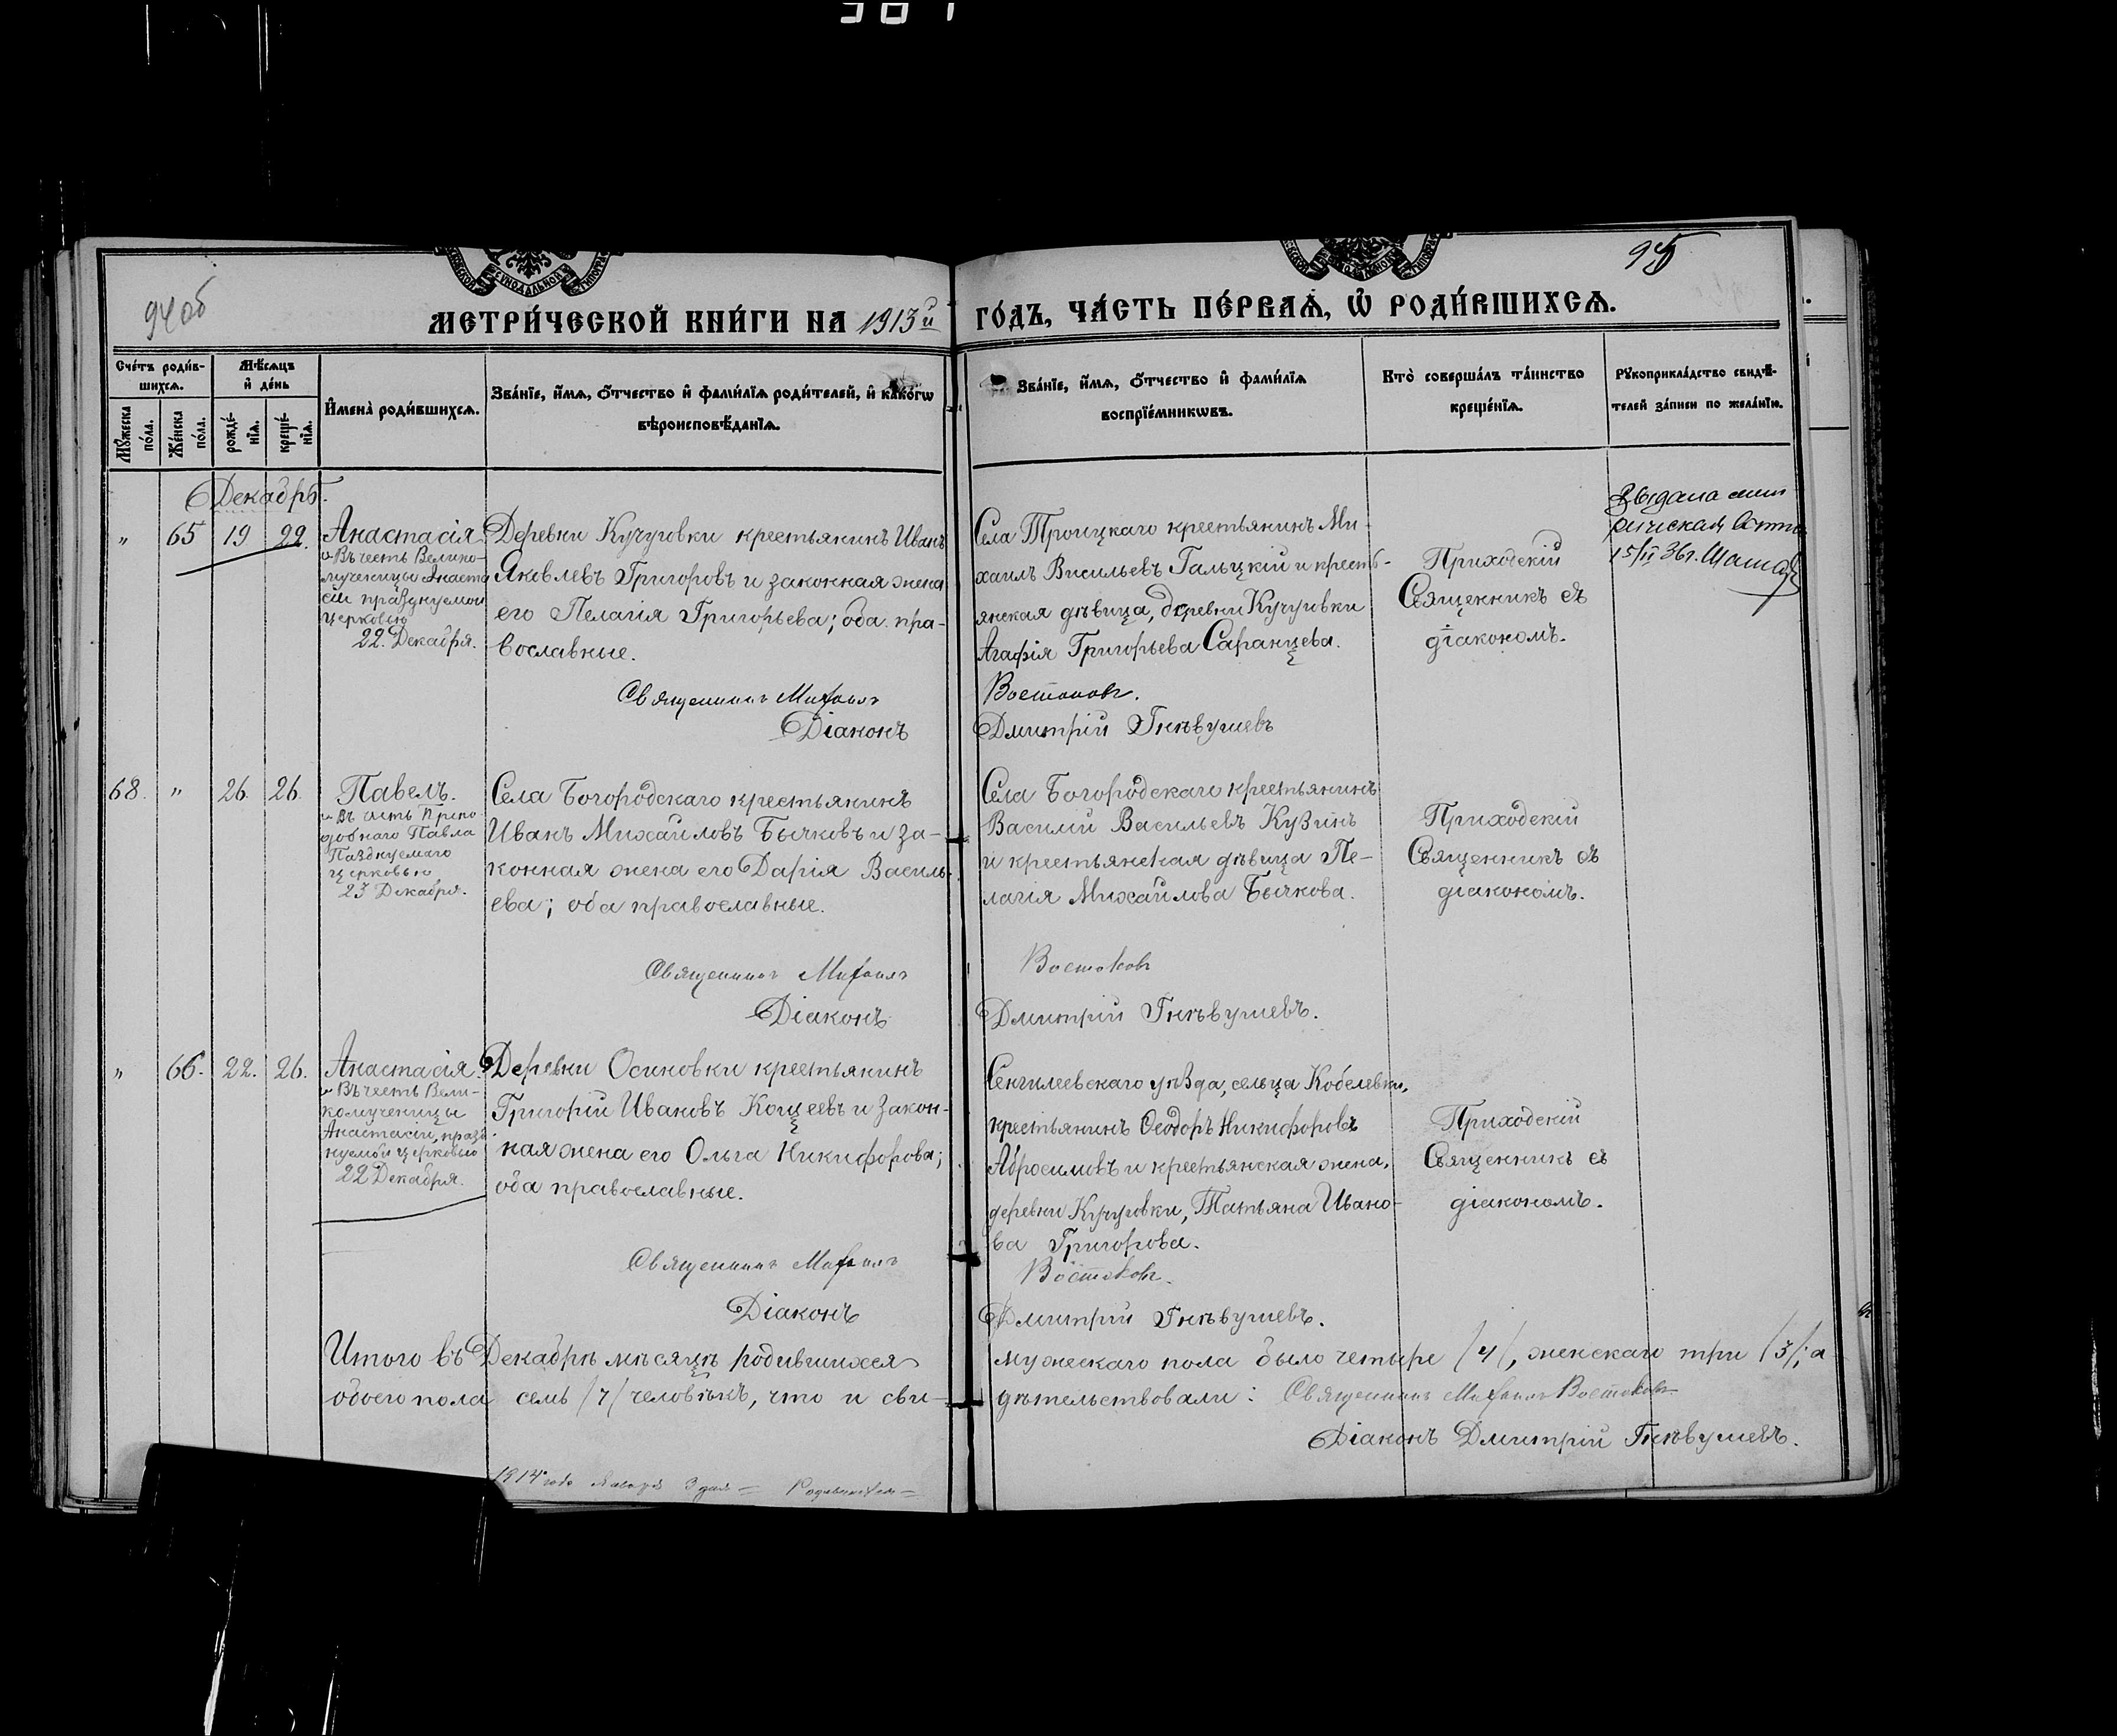 94об
95
МЕТРИ́ЧЕСКОЙ КНИ́ГИ НА 1913й ГО́ДЪ, ЧА́СТЬ ПЕ́РВАѦ, Ѡ РОДИ́ВШИХСѦ.
Сче́тъ роди́в-
шихсѧ.
Мѣ́сѧцъ
и де́нь
Мꙋ́жеска
по́ла.
Же́нска
по́ла.
рожде́-
нїѧ.
креще́-
нїѧ.
Имена̀ роди́вшихсѧ.
Зва́нїе, и́мѧ, о́тчество и фами́лїѧ роди́телей, и како́гѡ
вѣроисповѣ́данїѧ.
Зва́нїе, и́мѧ, о́тчество и фами́лїѧ
воспрїе́мникѡвъ.
Кто̀ соверша́лъ та́инство
креще́нїѧ.
Рꙋкоприкла́дство свидѣ́-
телей за́писи по жела́нїю.
Декабрь.
" 65 19 22.
Анастасія.
Въ честь Велико-
мученицы Анаста
сіи празднуемой
церковью
22. Декабря.
Деревни Кучуровки крестьянинъ Иванъ
Яковлевъ Григоровъ и законная жена
его Пелагія Григорьева; оба пра-
вославные.
Священникъ Михаилъ
Діаконъ
Села Троицкаго крестьянинъ Ми-
хаилъ Васильевъ Гальцкій и кресть-
янская дѣвица, деревни Кучуровки
Агафія Григорьева Саранцева.
Востоковъ.
Дмитрій Гнѣвушевъ
Приходскій
Священникъ съ
діакономъ.
Выдана
15/II 36г.
68. " 26. 26.
Павелъ.
Въ честь Препо
добнаго Павла
Пазднуемаго
церковью
23 Декабря.
Села Богородскаго крестьянинъ
Иванъ Михаиловъ Бычковъ и за-
конная жена его Дарія Василь-
ева; оба православные.
Священникъ Михаилъ
Діаконъ
Села Богородскаго крестьянинъ
Василій Васильевъ Кузинъ
и крестьянская дѣвица Пе-
лагія Михайлова Бычкова.
Востоковъ
Дмитрій Гнѣвушевъ.
Приходскій
Священникъ съ
діакономъ.
" 66. 22. 26.
Анастасія.
Въ честь Вели-
комученицы
Анастасіи, празд
нуемой церковью
22 Декабря.
Деревни Осиновки крестьянинъ
Григорій Ивановъ Кощеевъ и закон-
ная жена его Ольга Никифорова;
оба православные.
Священникъ Михаилъ
Діаконъ
Сенгилеевскаго уѣзда, сельца Кобелевки,
крестьянинъ Ѳеодоръ Никифоровъ
Абросимовъ и крестьянская жена,
деревни Кучуровки, Татьяна Ивано-
ва Григорова.
Востоковъ.
Дмитрій Гнѣвушевъ.
Приходскій
Священникъ съ
діакономъ.
Итого въ Декабрѣ мѣсяцѣ родившихся мужескаго пола было четыре /4/, женскаго три /3/; а
обоего пола семь /7/ человѣкъ, что и сви- дѣтельствовали: Священникъ Михаилъ Востоковъ
Діаконъ Дмитрій Гнѣвушевъ.
1914 года Января 3 дня